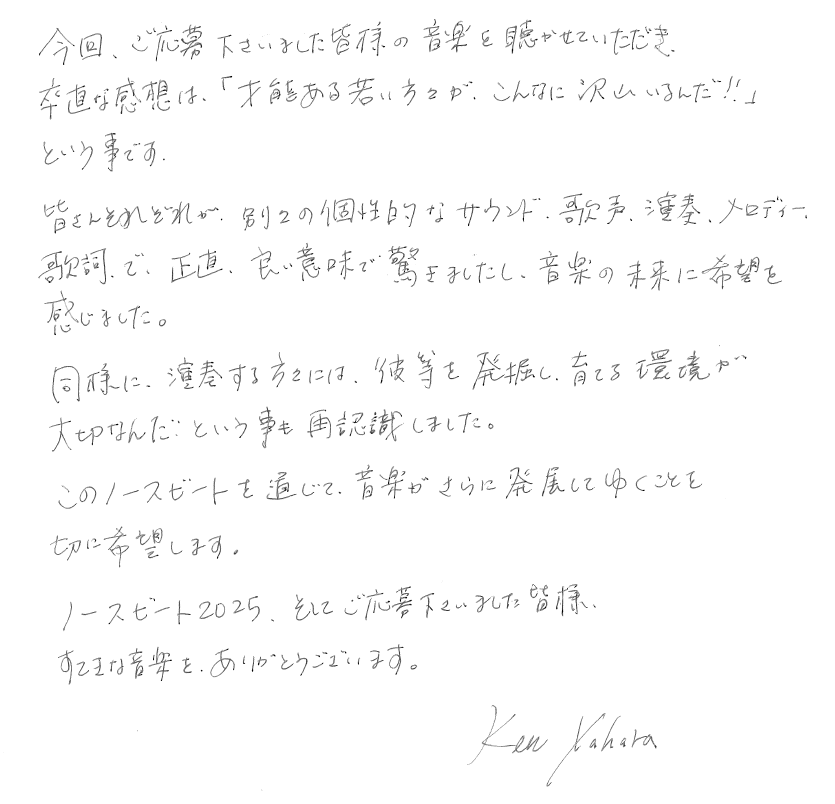 今回、ご応募下さいました皆様の音楽を聴かせていただき、
率直な感想は、「才能ある若い方々が、こんなに沢山いるんだ!!」
という事です。
皆さんそれぞれが、別々の個性的なサウンド、歌声、演奏、メロディー、
歌詞、で、正直、良い意味で驚きましたし、音楽の未来に希望を
感じました。
同様に、演奏する方々には、彼等を発掘し、育てる環境が
大切なんだ…という事も再認識しました。
このノースビートを通じて、音楽がさらに発展してゆくことを
切に希望します。
ノースビート2025、そしてご応募下さいました皆様、
すてきな音楽を、ありがとうございます。
Ken Yahara